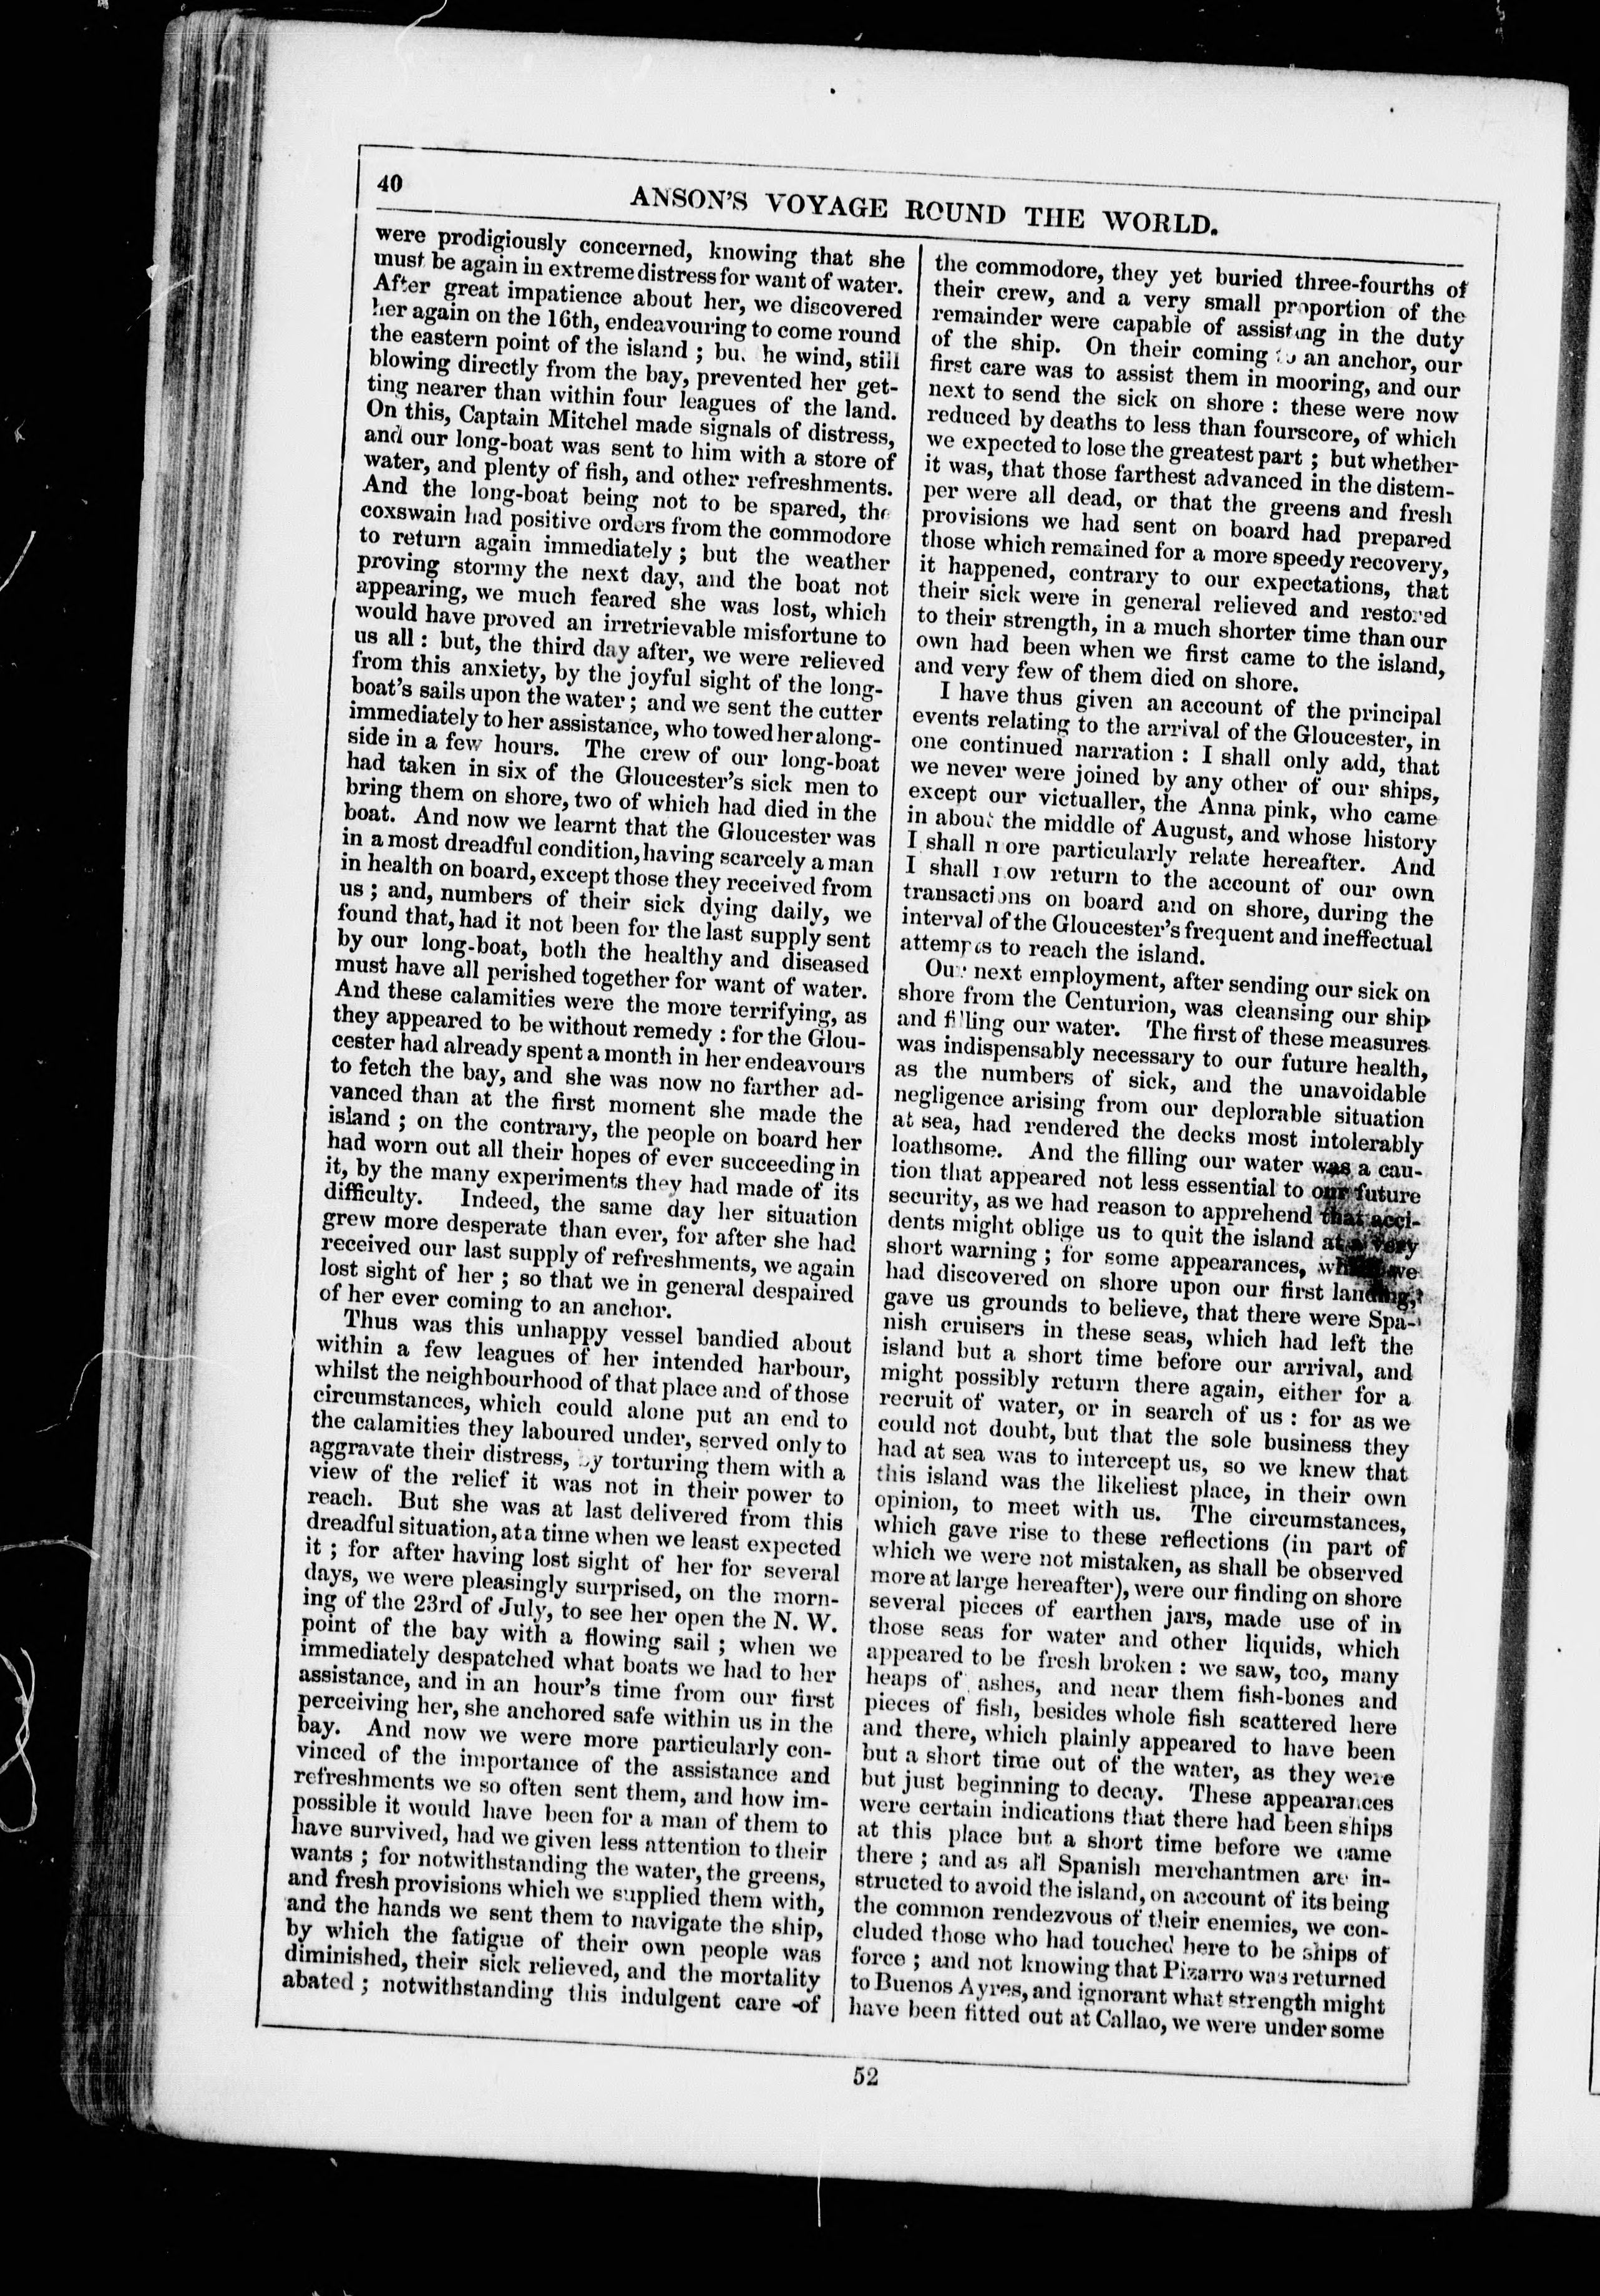 40
ANSON'S VOYAGE ROUND THE WORLD.
were prodigiously concerned, knowing that she
must be again in extreme distress for want of water.
After great impatience about her, we discovered
her again on the 16th, endeavouring to come round
the eastern point of the island ; bu he wind, still
blowing directly from the bay, prevented her get-
ting nearer than within four leagues of the land.
On this, Captain Mitchel made signals of distress,
and our long-boat was sent to him with a store of
water, and plenty of fish, and other refreshments.
And the long-boat being not to be spared, the
coxswain had positive orders from the commodore
to return again immediately ; but the weather
proving stormy the next day, and the boat not
appearing, we much feared she was lost, which
would have proved an irretrievable misfortune to
us all : but, the third day after, we were relieved
from this anxiety, by the joyful sight of the long-
boat's sails upon the water ; and we sent the cutter
immediately to her assistance, who towed her along-
side in a few hours. The crew of our long-boat
had taken in six of the Gloucester's sick men to
bring them on shore, two of which had died in the
boat. And now we learnt that the Gloucester was
in a most dreadful condition, having scarcely a man
in health on board, except those they received from
us ; and, numbers of their sick dying daily, we
found that, had it not been for the last supply sent
by our long-boat, both the healthy and diseased
must have all perished together for want of water.
And these calamities were the more terrifying, as
they appeared to be without remedy : for the Glou-
cester had already spent a month in her endeavours
to fetch the bay, and she was now no farther ad-
vanced than at the first moment she made the
island ; on the contrary, the people on board her
had worn out all their hopes of ever succeeding in
it, by the many experiments they had made of its
difficulty. Indeed, the same day her situation
grew more desperate than ever, for after she had
received our last supply of refreshments, we again
lost sight of her ; so that we in general despaired
of her ever coming to an anchor.
Thus was this unhappy vessel bandied about
within a few leagues of her intended harbour,
whilst the neighbourhood of that place and of those
circumstances, which could alone put an end to
the calamities they laboured under, served only to
aggravate their distress, by torturing them with a
view of the relief it was not in their power to
reach. But she was at last delivered from this
dreadful situation, at a time when we least expected
it ; for after having lost sight of her for several
days, we were pleasingly surprised, on the morn-
ing of the 23rd of July, to see her open the N. W.
point of the bay with a flowing sail ; when we
immediately despatched what boats we had to her
assistance, and in an hour's time from our first
perceiving her, she anchored safe within us in the
bay. And now we were more particularly con-
vinced of the importance of the assistance and
refreshments we so often sent them, and how im-
possible it would have been for a man of them to
have survived, had we given less attention to their
wants ; for notwithstanding the water, the greens,
and fresh provisions which we supplied them with,
and the hands we sent them to navigate the ship,
by which the fatigue of their own people was
diminished, their sick relieved, and the mortality
abated ; notwithstanding this indulgent care of
the commodore, they yet buried three-fourths of
their crew, and a very small proportion of the
remainder were capable of assisting in the duty
of the ship. On their coming to an anchor, our
first care was to assist them in mooring, and our
next to send the sick on shore : these were now
reduced by deaths to less than fourscore, of which
we expected to lose the greatest part ; but whether
it was, that those farthest advanced in the distem-
per were all dead, or that the greens and fresh
provisions we had sent on board had prepared
those which remained for a more speedy recovery,
it happened, contrary to our expectations, that
their sick were in general relieved and restored
to their strength, in a much shorter time than our
own had been when we first came to the island,
and very few of them died on shore.
I have thus given an account of the principal
events relating to the arrival of the Gloucester, in
one continued narration : I shall only add, that
we never were joined by any other of our ships,
except our victualler, the Anna pink, who came
in about the middle of August, and whose history
I shall more particularly relate hereafter. And
I shall now return to the account of our own
transactions on board and on shore, during the
interval of the Gloucester's frequent and ineffectual
attempts to reach the island.
Our next employment, after sending our sick on
shore from the Centurion, was cleansing our ship
and filling our water. The first of these measures
was indispensably necessary to our future health,
as the numbers of sick, and the unavoidable
negligence arising from our deplorable situation
at sea, had rendered the decks most intolerably
loathsome. And the filling our water was a cau-
tion that appeared not less essential to our future
security, as we had reason to apprehend that acci-
dents might oblige us to quit the island at a very
short warning ; for some appearances, which we
had discovered on shore upon our first landing,
gave us grounds to believe, that there were Spa-
nish cruisers in these seas, which had left the
island but a short time before our arrival, and
might possibly return there again, either for a
recruit of water, or in search of us : for as we
could not doubt, but that the sole business they
had at sea was to intercept us, so we knew that
this island was the likeliest place, in their own
opinion, to meet with us. The circumstances,
which gave rise to these reflections (in part of
which we were not mistaken, as shall be observed
more at large hereafter), were our finding on shore
several pieces of earthen jars, made use of in
those seas for water and other liquids, which
appeared to be fresh broken : we saw, too, many
heaps of ashes, and near them fish-bones and
pieces of fish, besides whole fish scattered here
and there, which plainly appeared to have been
but a short time out of the water, as they were
but just beginning to decay. These appearances
were certain indications that there had been ships
at this place but a short time before we came
there ; and as all Spanish merchantmen are in-
structed to avoid the island, on account of its being
the common rendezvous of their enemies, we con-
cluded those who had touched here to be ships of
force ; and not knowing that Pizarro was returned
to Buenos Ayres, and ignorant what strength might
have been fitted out at Callao, we were under some
52